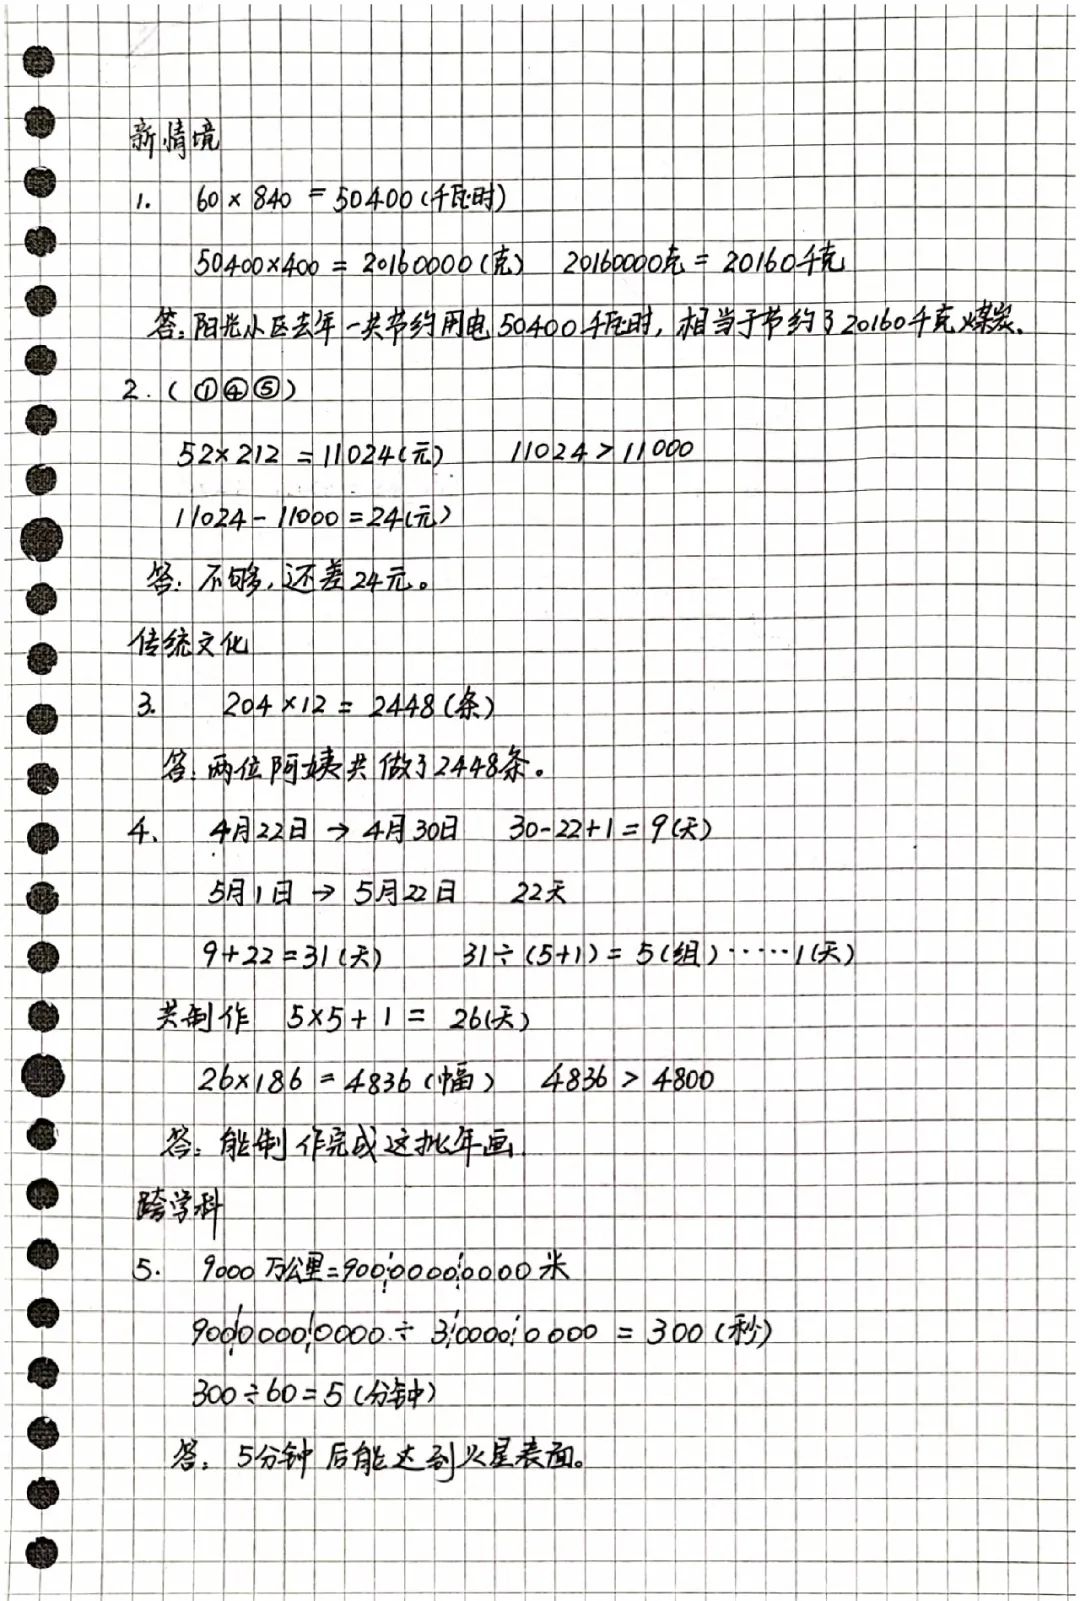 新情境
1. 60×840=50400(千瓦时)
50400×400=20160000(克) 20160000克=20160千克
答:阳光小区去年一共节约用电50400千瓦时,相当于节约了20160千克煤炭.
2.(①④⑤)
52×212=11024(元) 11024>11000
11024-11000=24(元)
答:不够,还差24元。
传统文化
3. 204×12=2448(条)
答:两位阿姨共做了2448条。
4、 4月22日→4月30日 30-22+1=9(天)
5月1日→5月22日 22天
9+22=31(天) 31÷(5+1)=5(组)······1(天)
共制作 5×5+1=26(天)
26×186=4836(幅) 4836>4800
答:能制作完成这批年画.
跨学科
5. 9000万公里=90000000000米
90000000000÷300000000=300(秒)
300÷60=5(分钟)
答:5分钟后能达到火星表面。